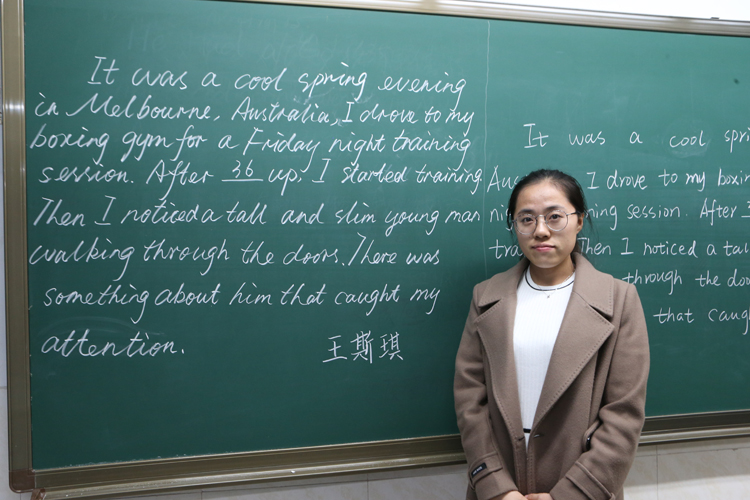 It was a cool spring evening
in Melbourne, Australia, I drove to my
boxing gym for a Friday night training
session. After 36 up, I started training.
Then I noticed a tall and slim young man
walking through the doors. There was
something about him that caught my
attention.
王斯琪
It was a cool spri
I drove to my boxin
ning session. After
Then I noticed a tal
through the doo
that caugh